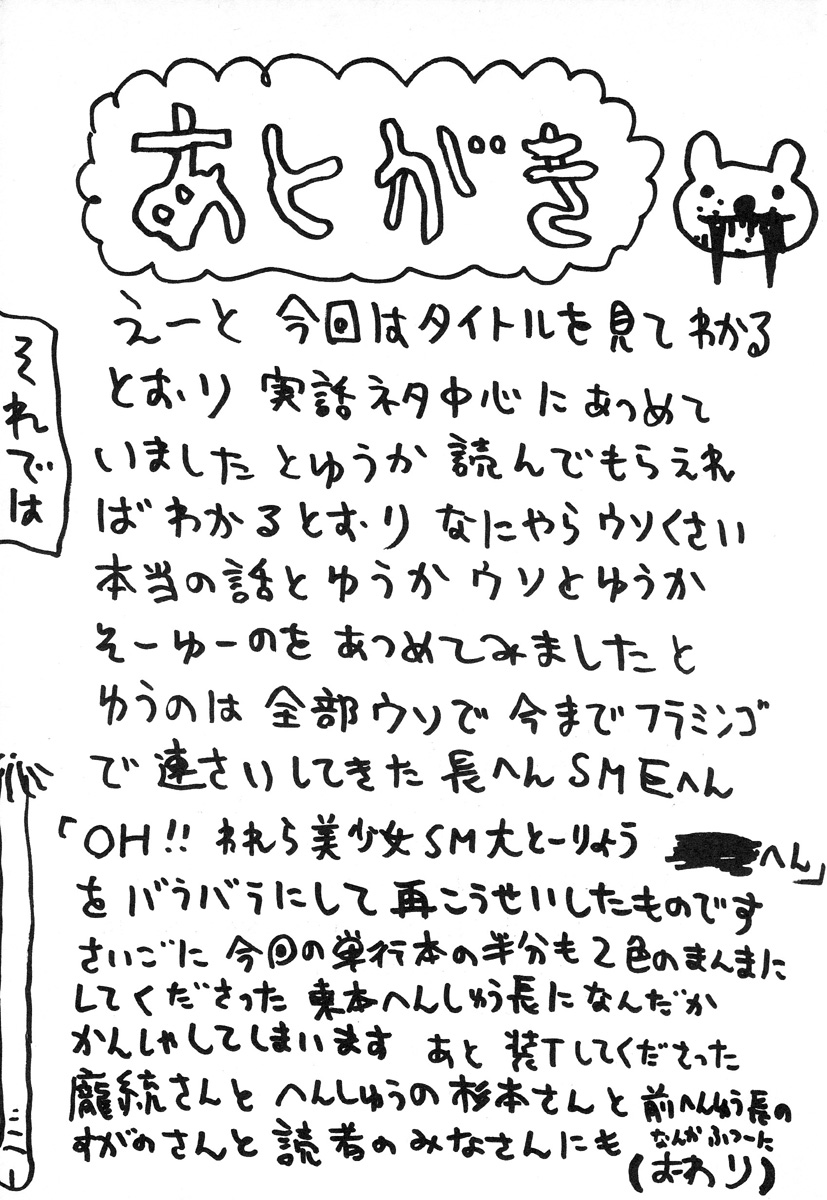 あとがき
えーと 今回はタイトルを見てわかる
とおり 実話ネタ中心にあつめて
いました とゆうか 読んでもらえれ
ば わかるとおり なにやら ウソくさい
本当の話とゆうか ウソとゆうか
そーゆーのを あつめてみましたと
ゆうのは 全部ウソで 今までフラミンゴ
で 連さいしてきた 長へんSMEへん
「OH!! われら美少女SM大とーりょう へん」
を バラバラにして 再こうせいしたものです
さいごに 今回の単行本の半分も2色のまんまに
してくださった 東本へんしゅう長に なんだか
かんしゃしてしまいます あと 装Tしてくださった
龐統さんと へんしゅうの杉本さんと 前へんしゅう長の
すがのさんと 読者のみなさんにも なんかふつーに
(おわり)
それでは